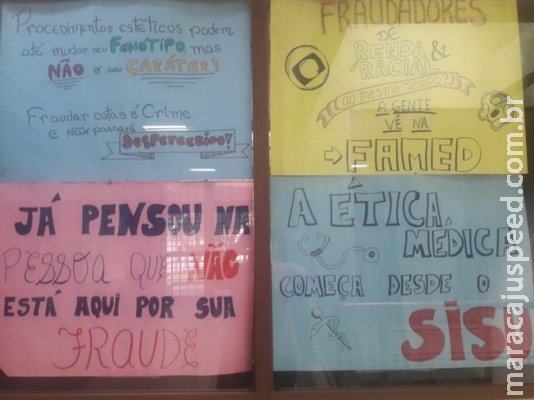 Procedimentos estéticos podem
até mudar seu FENÓTIPO, mas
NÃO o seu CARÁTER!
Fraudar cotas é Crime
e não passará
DESPERCEBIDO!
FRAUDADORES
DE
RENDA &
RACIAL
(ao mesmo tempo?)
A GENTE
VÊ NA
→ FAMED
JÁ PENSOU NA
PESSOA QUE NÃO
ESTÁ AQUI POR SUA
FRAUDE
A ÉTICA
MÉDICA
COMEÇA DESDE O
SISU
maracajuspeed.com.br